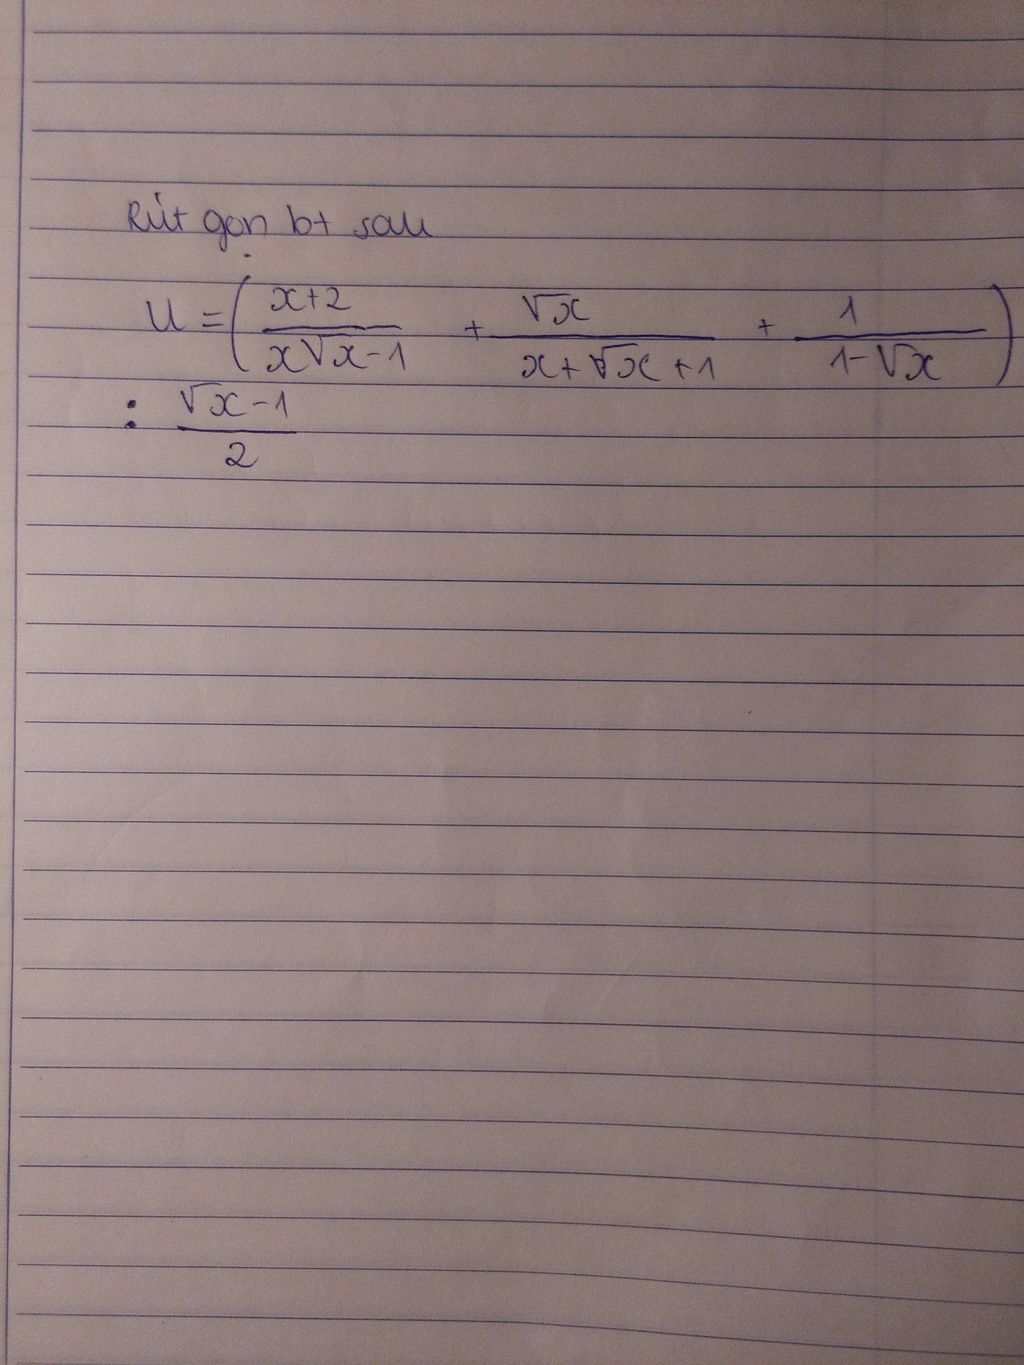 Rút gọn bt sau
U = ( x+2 / x√x-1 + √x / x+√x+1 + 1 / 1-√x )
: √x-1 / 2